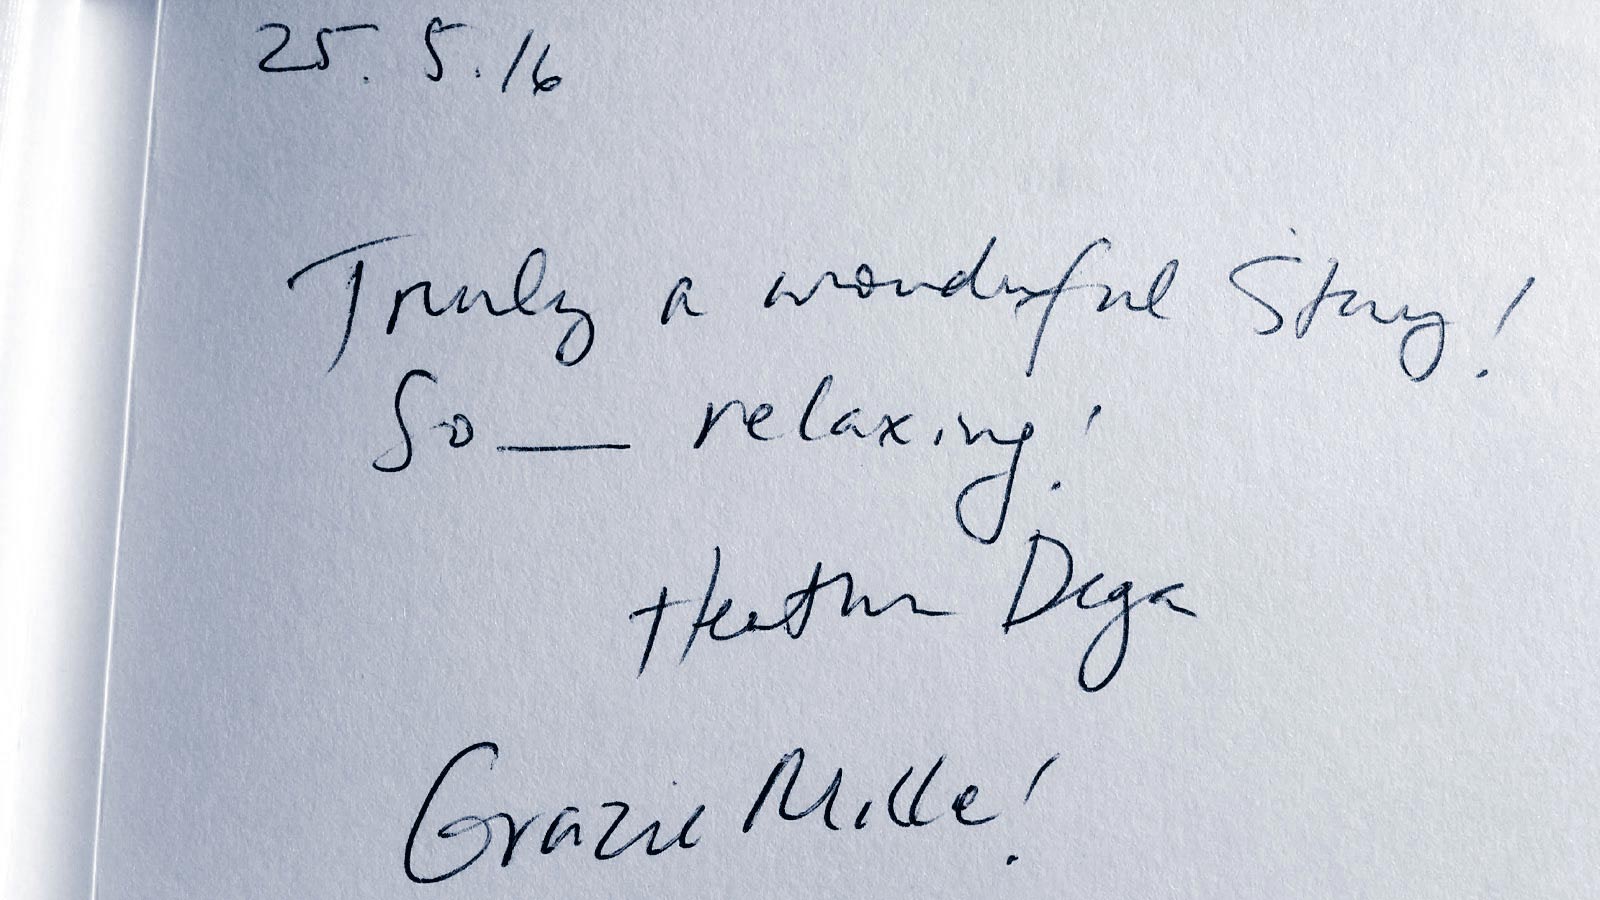 25.5.16
Truly a wonderful Stay!
So__ relaxing!
Heather Dega
Grazie Mille!